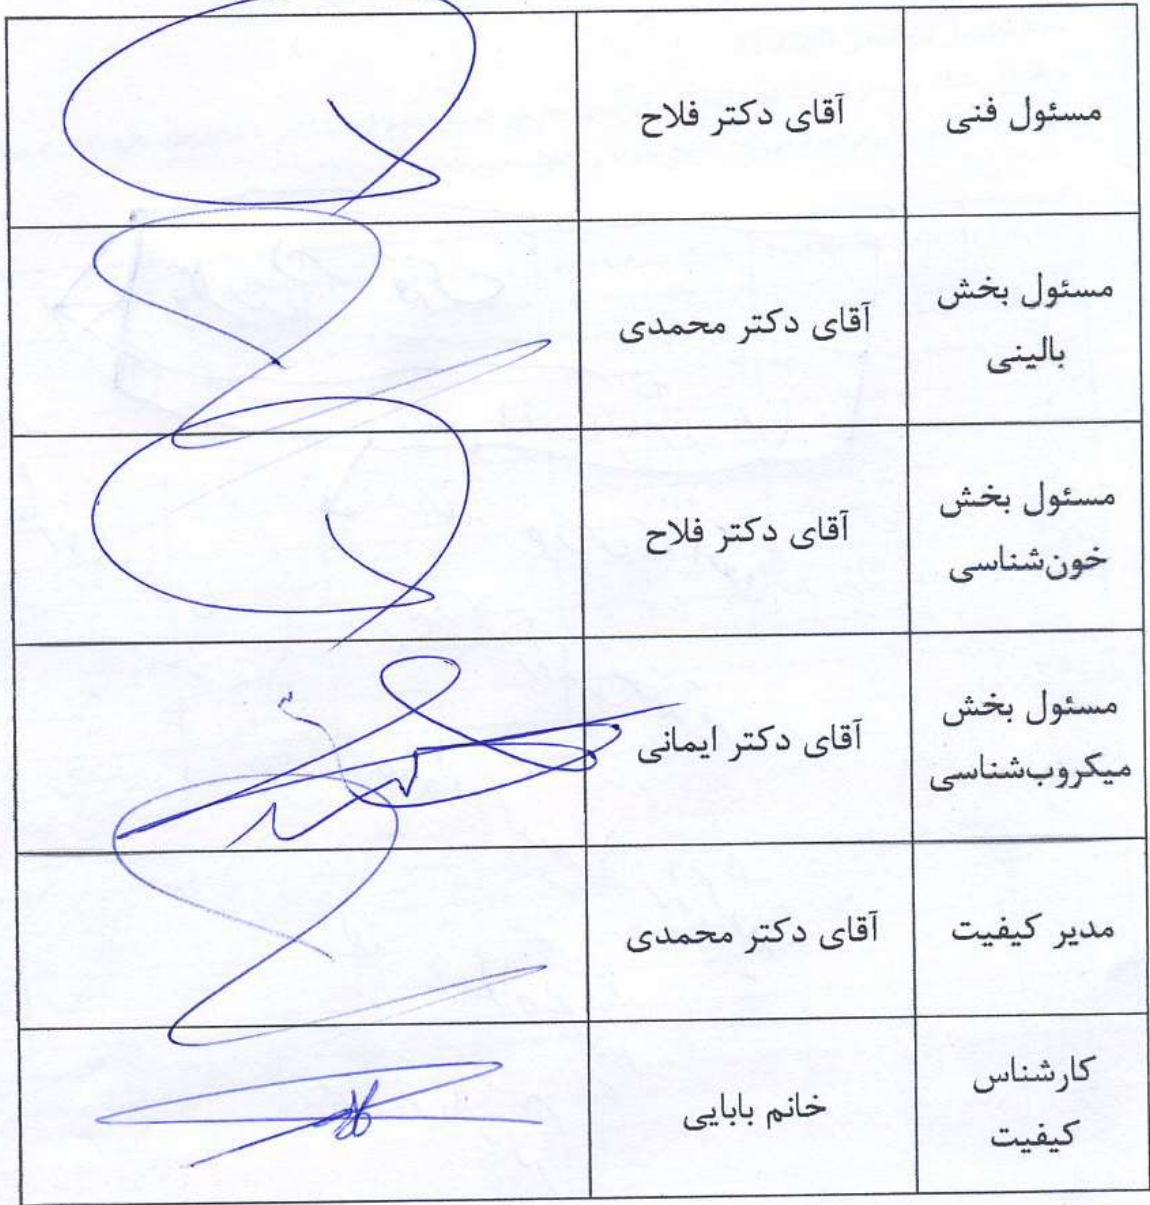 مسئول فنی
آقای دکتر فلاح
مسئول بخش
بالینی
آقای دکتر محمدی
مسئول بخش
خون‌شناسی
آقای دکتر فلاح
مسئول بخش
میکروب‌شناسی
آقای دکتر ایمانی
مدیر کیفیت
آقای دکتر محمدی
کارشناس
کیفیت
خانم بابایی